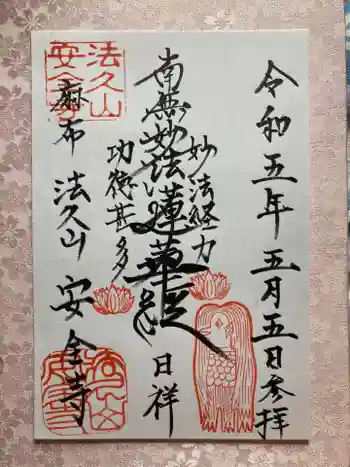 令和五年五月五日参拝
妙法経力
南無妙法蓮華経
日祥
功徳甚多
麻布 法久山 安全寺
法久山
安全寺